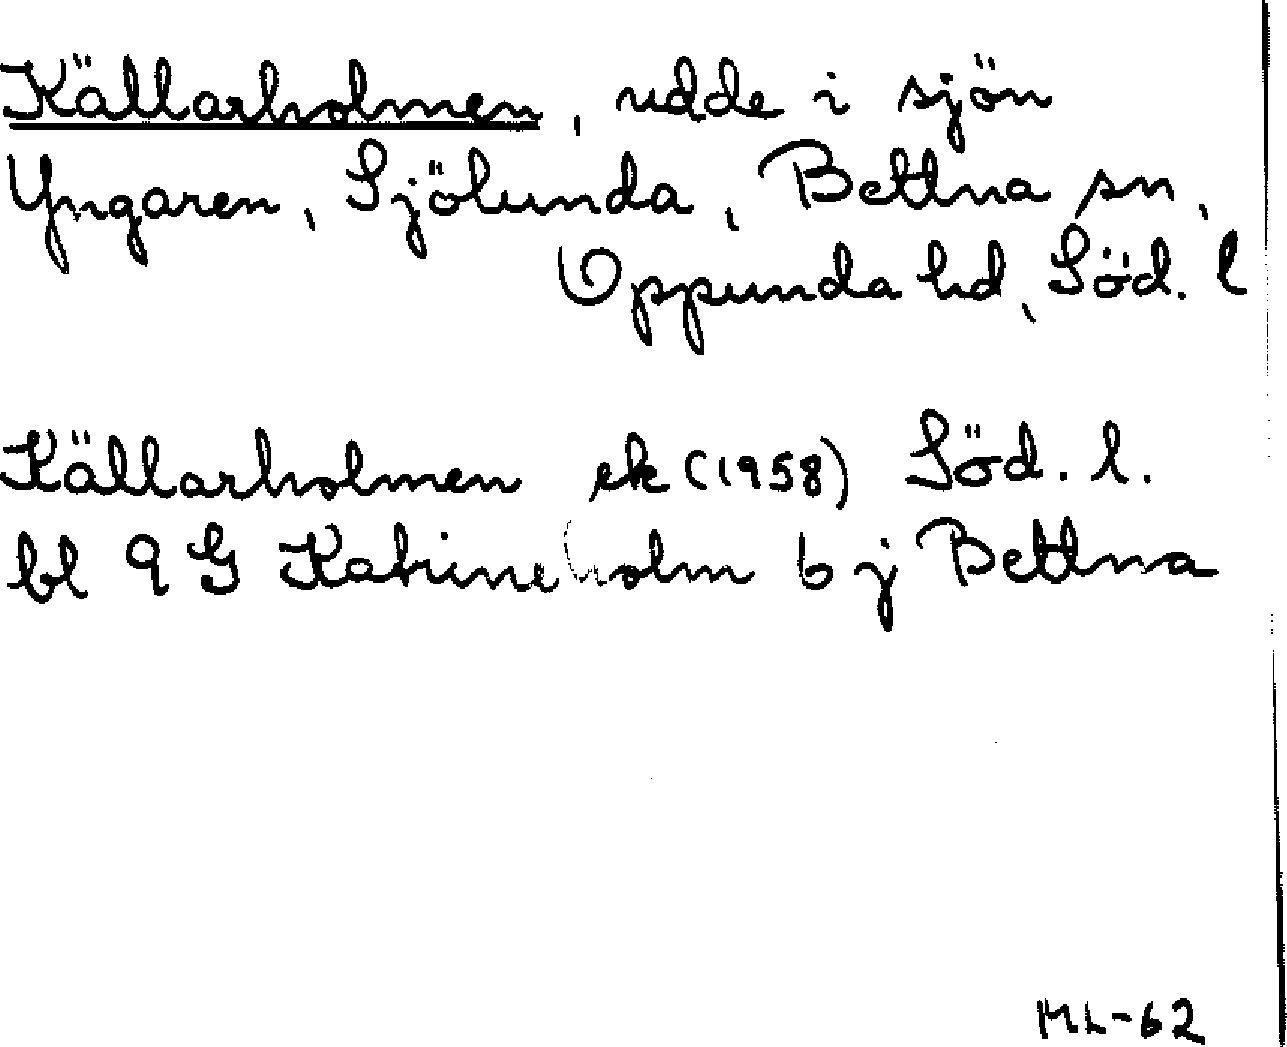 Källarholmen, udde i sjön
Yngaren, Sjölunda, Bettna sn,
Oppunda hd, Söd. l
Källarholmen ek (1958) Söd. l.
bl 9 G Katrineholm 6 j Bettna
ML-62